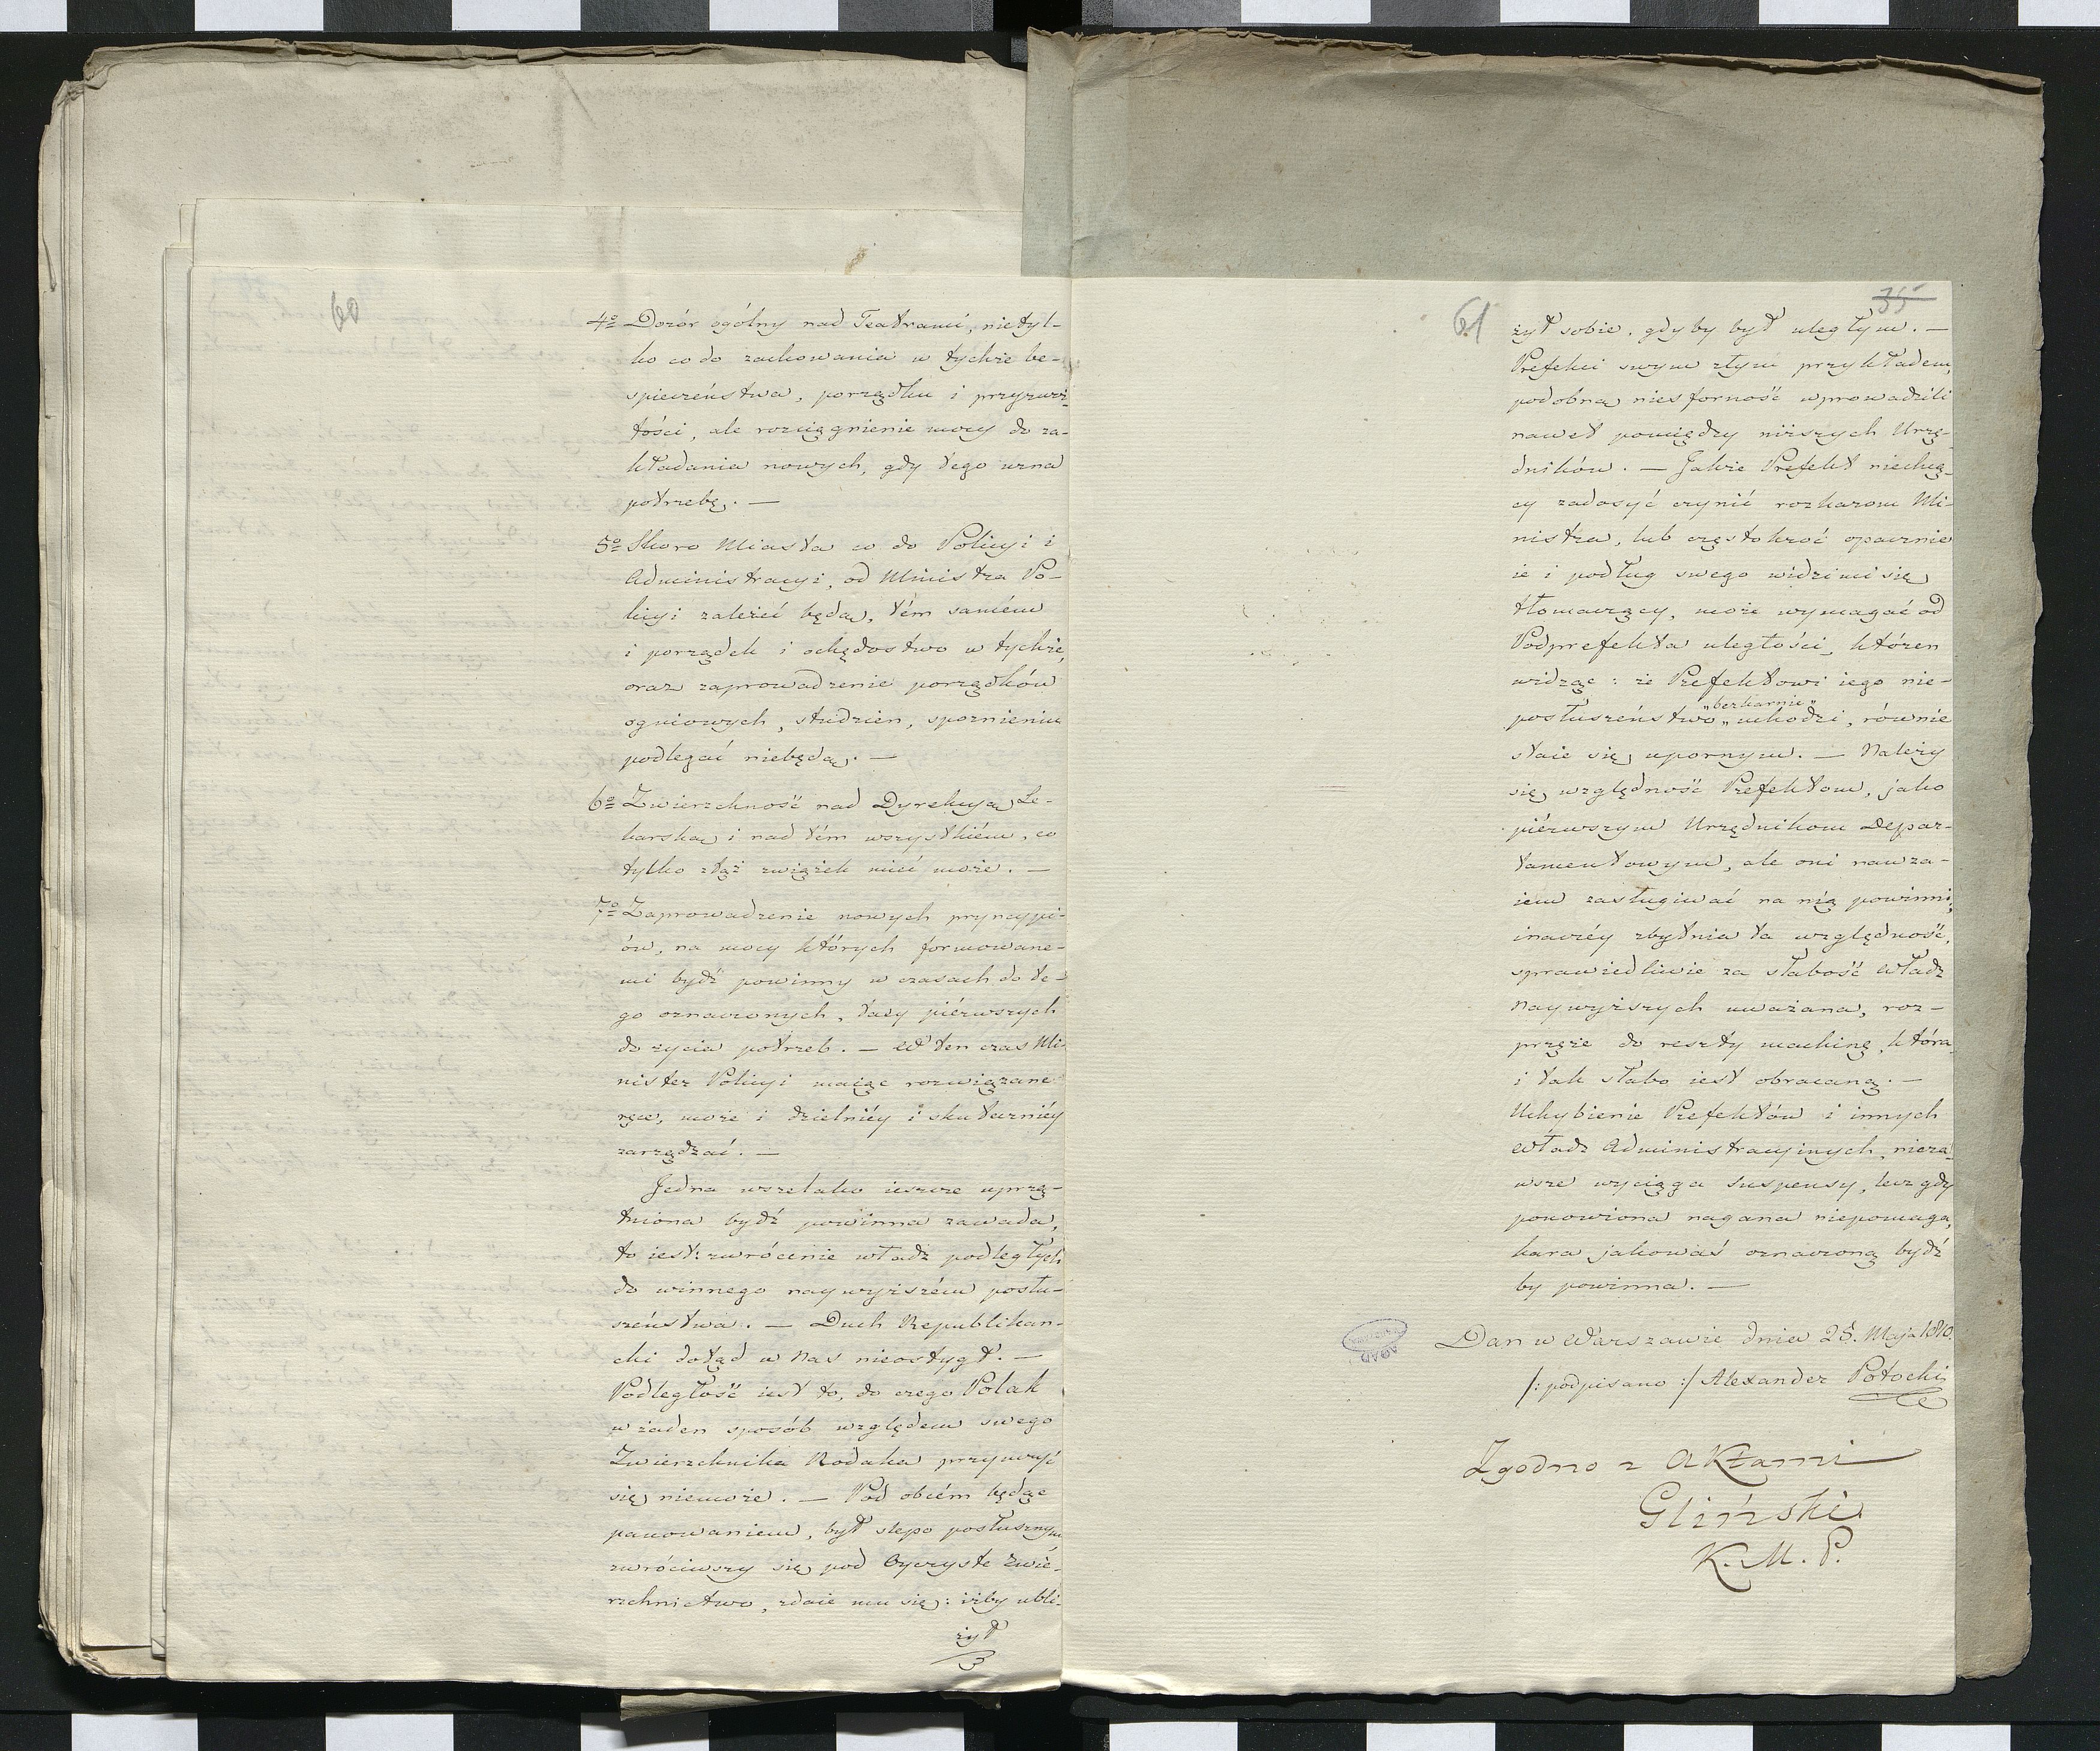 60
4o Dozór ogólny nad Teatrami, nietyl-
ko co do zachowania w tychże be-
spieczeństwa, porządku i przyzwoi-
tości, ale rozciągnienie mocy do za-
kładania nowych, gdy tego uzna
potrzebę. —
5o Skoro Miasta co do Policyi i
Administracyi, od Ministra Po-
licyi zależeć będą, tém samém
i porządek i ochędostwo w tychże,
oraz zaprowadzenie porządków
ogniowych, studzien, spoznieniu
podlegać niebędą. —
6o Zwierzchność nad Dyrekcyą Le-
karską i nad tém wszystkiém, co
tylko ztąż związek mieć może. —
7o Zaprowadzenie nowych pryncypi-
ów, na mocy których formowane-
mi bydź powinny w czasach do te-
go oznaczonych, taxy piérwszych
do życia potrzeb. — W ten czas Mi-
nister Policyi maiąc rozwiązane
ręce, może i dzielniéy i skuteczniéy
zarządzać. —
Jedna wszelako ieszcze uprzą-
tniona bydź powinna zawada,
to iest: zwrócenie władz podległych
do winnego naywyższém posłu-
szeństwa. — Duch Republikan-
cki dotąd w Nas nieostygł. —
Podległość iest to, do czego Polak
w żaden sposób względem swego
Zwierzchnika Rodaka przywyść
się niemoże. — Pod obcém będąc
panowaniem, był slepo posłusznym
zwróciwszy się pod Oyczyste Zwie-
rzchnictwo, zdaie mu się: iżby ubli-
żył
61
35
żył sobie, gdyby był uległym. —
Prefekci swym złym przykładem,
podobną niesforność wprowadzili
nawet pomiędzy niższych Urzę-
dników. — Jakże Prefekt niechcą-
cy zadosyć czynić rozkazom Mi-
nistra, lub częstokroć opacznie
ie i podług swego widzimi się
tłomaczący, może wymagać od
Podprefekta uległości, któren
widząc: że Prefektowi iego nie-
"bezkarnie"
posłuszeństwo " uchodzi, równie
staie się upornym. — Należy
się względność Prefektom, jako
piérwszym Urzędnikom Depar-
tamentowym, ale oni nawza-
iem zasługiwać na nią powinni,
inaczéy zbytnia ta względność,
sprawiedliwie za słabość Władz
Naywyższych uważana, roz-
przęże do reszty machinę, która
i tak słabo iest obracaną. —
Uchybienie Prefektów i innych
Władz Administracyinych, nieza-
wsze wyciąga suspensy, lecz gdy
ponowiona nagana niepomaga,
kara jakowaś oznaczoną bydź
by powinna. —
Dan w Warszawie dnia 25. Maja 1810.
/: podpisano :/ Alexander Potocki
Zgodno z Aktami
Gliński
K. M. P.
AGAD